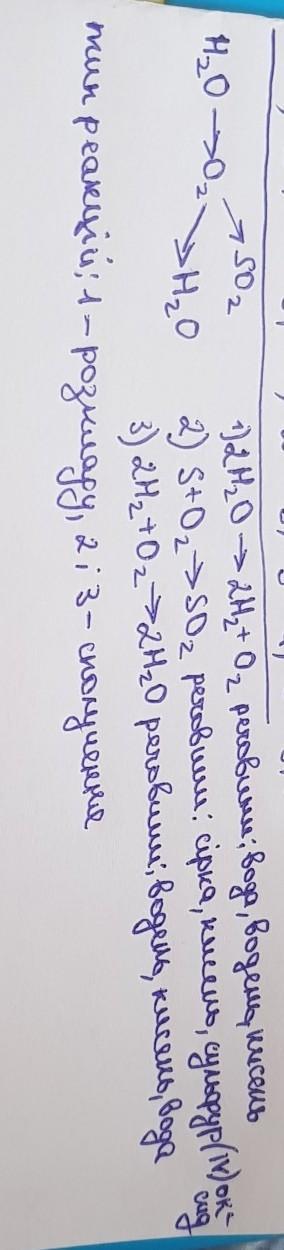 H₂O → O₂ → SO₂
→ H₂O
1) 2H₂O → 2H₂ + O₂ речовини: вода, водень, кисень
2) S + O₂ → SO₂ речовини: сірка, кисень, сульфур(IV) ок=
сид
3) 2H₂ + O₂ → 2H₂O речовини: водень, кисень, вода
тип реакцій: 1 – розкладу, 2 і 3 – сполучення